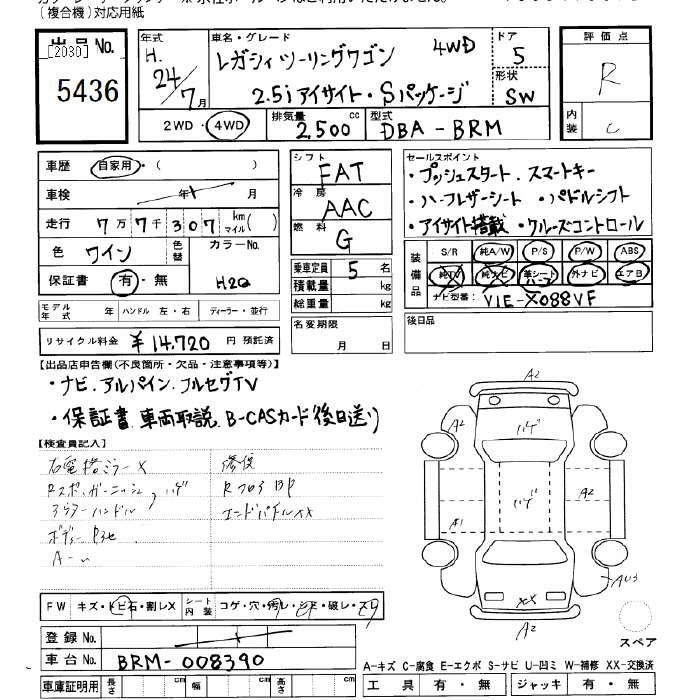 (複合機)対応用紙
出品No. [2030] 5436
年式 H. 24/7月
車名・グレード レガシィツーリングワゴン 4WD
2.5i アイサイト・Sパッケージ
ドア 5
形状 SW
評価点 R
内装 C
2WD・4WD
排気量 2,500 cc
型式 DBA-BRM
車歴 自家用・( )
車検 年 月
走行 7万7千307 km マイル( )
色 ワイン 色替 カラーNo. H2Q
保証書 有・無
シフト FAT
冷房 AAC
燃料 G
乗車定員 5 名
積載量 kg
総重量 kg
名変期限 月 日
セールスポイント
・プッシュスタート.スマートキー
・ハーフレザーシート ・パドルシフト
・アイサイト搭載・クルーズコントロール
装備品 S/R 純A/W P/S P/W ABS
純TV 純ナビ 革シート ハーフ 外ナビ エアB
ナビ型番: VIE-X088VF
後日品
モデル年式 年 ハンドル 左・右 ディーラー・並行
リサイクル料金 ¥14,720 円 預託済
【出品店申告欄(不良箇所・欠品・注意事項等)】
・ナビ.アルパイン.フルセグTV
・保証書.車両取説.B-CASカード後日送り
【検査員記入】
右電格ミラーX
Rスポ.ガーニッシュ ハゲ
ボディー
A-
修復
RフロアBP
エンドパネルXX
A2
ハゲ
A2
ハゲ
A2
A1
XX
A2
AU3
スペア
FW キズ・トビ石・割レX シート内装 コゲ・穴・汚レ・シミ・破レ・スリ
登録No.
車台No. BRM-008390
A-キズ C-腐食 E-エクボ S-サビ U-凹ミ W-補修 XX-交換済
車庫証明用 長さ cm 幅 cm 高さ cm
工具 有・無 ジャッキ 有・無